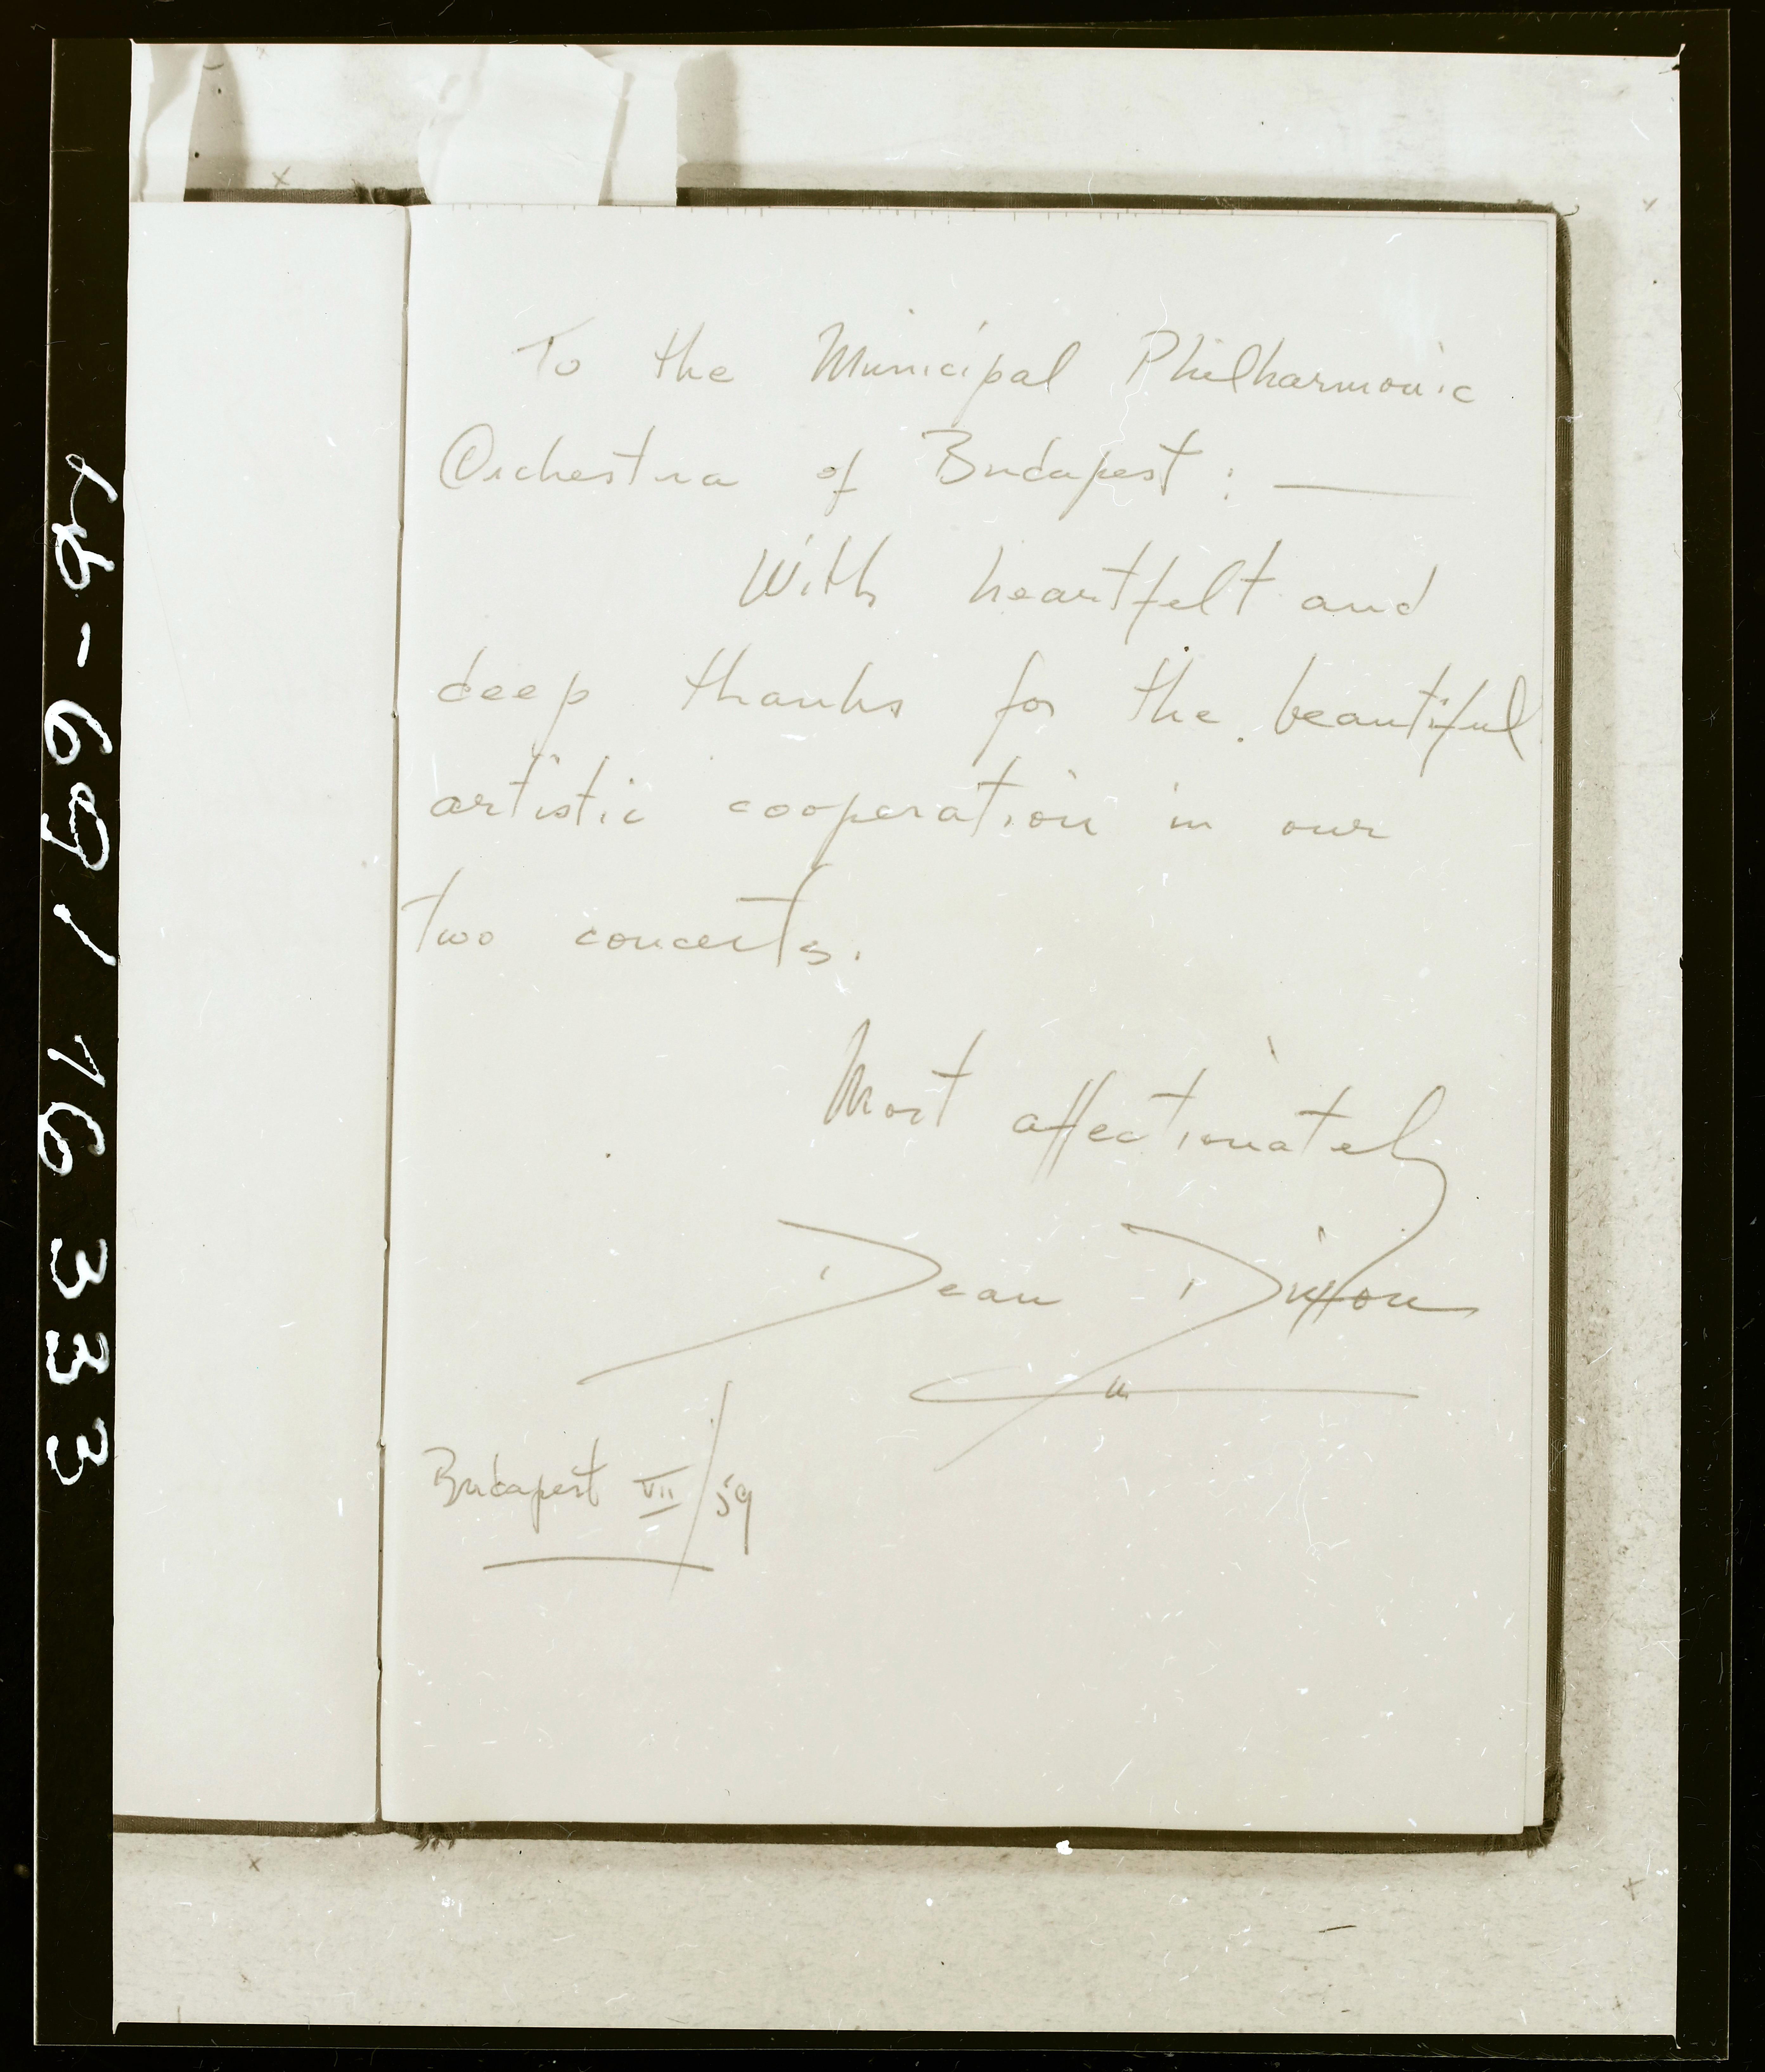 To the Municipal Philharmonic
Orchestra of Budapest : —
With heartfelt and
deep thanks for the beautiful
artistic cooperation in our
two concerts.
Most affectionately
Dean Dixon
Budapest VII/59
69/16333